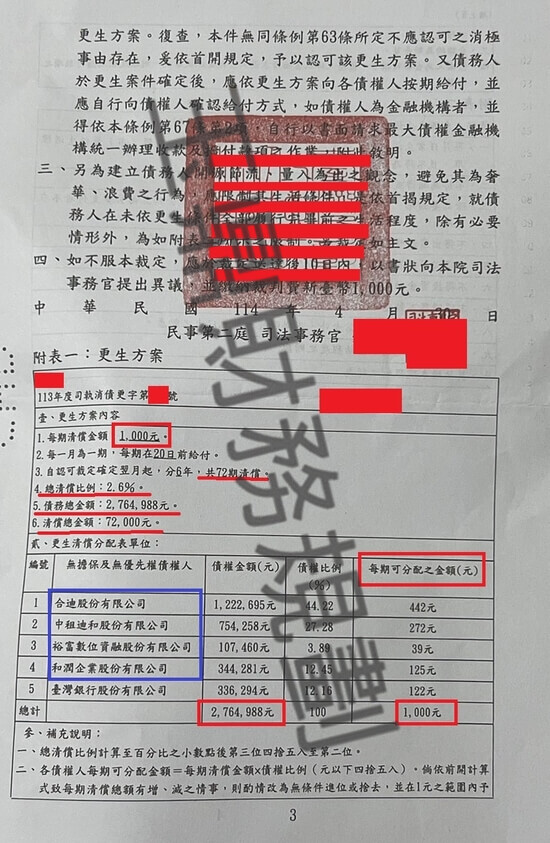 更生方案。復查，本件無同條例第63條所定不應認可之消極
事由存在，爰依首開規定，予以認可該更生方案。又債務人
於更生案件確定後，應依更生方案向各債權人按期給付，並
應自行向債權人確認給付方式，如債權人為金融機構者，並
得依本條例第67條第2項，自行以書面請求最大債權金融機
構統一辦理收款及撥付款項之作業，附此敘明。
三、另為建立債務人開源節流、量入為出之觀念，避免其為奢
華、浪費之行為，依首揭規定，就債
務人在未依更生條件全部履行完畢前之生活程度，除有必要
情形外，為如附表
四、如不服本裁定，應於裁定送達後10日內，以書狀向本院司法
事務官提出異議，並繳納裁判費新臺幣1,000元。
中 華 民 國 114 年 4 月 30 日
民事第二庭 司法事務官
附表一：更生方案
113年度司執消債更字第 號
壹、更生方案內容
1.每期清償金額 1,000元。
2.每一月為一期，每期在20日前給付。
3.自認可裁定確定翌月起，分6年，共72期清償。
4.總清償比例：2.6%。
5.債務總金額：2,764,988元。
6.清償總金額：72,000元。
貳、更生清償分配表單位：
編號 無擔保及無優先權債權人 債權金額(元) 債權比例(%) 每期可分配之金額(元)
1 合迪股份有限公司 1,222,695元 44.22 442元
2 中租迪和股份有限公司 754,258元 27.28 272元
3 裕富數位資融股份有限公司 107,460元 3.89 39元
4 和潤企業股份有限公司 344,281元 12.45 125元
5 臺灣銀行股份有限公司 336,294元 12.16 122元
總計 2,764,988元 100 1,000元
參、補充說明：
一、總清償比例計算至百分比之小數點後第三位四捨五入至第二位。
二、各債權人每期可分配金額＝每期清償金額×債權比例（元以下四捨五入）。倘依前開計算
式致每期清償總額有增、減之情事，則酌情改為無條件進位或捨去，並在1元之範圍內予
3
財務規劃